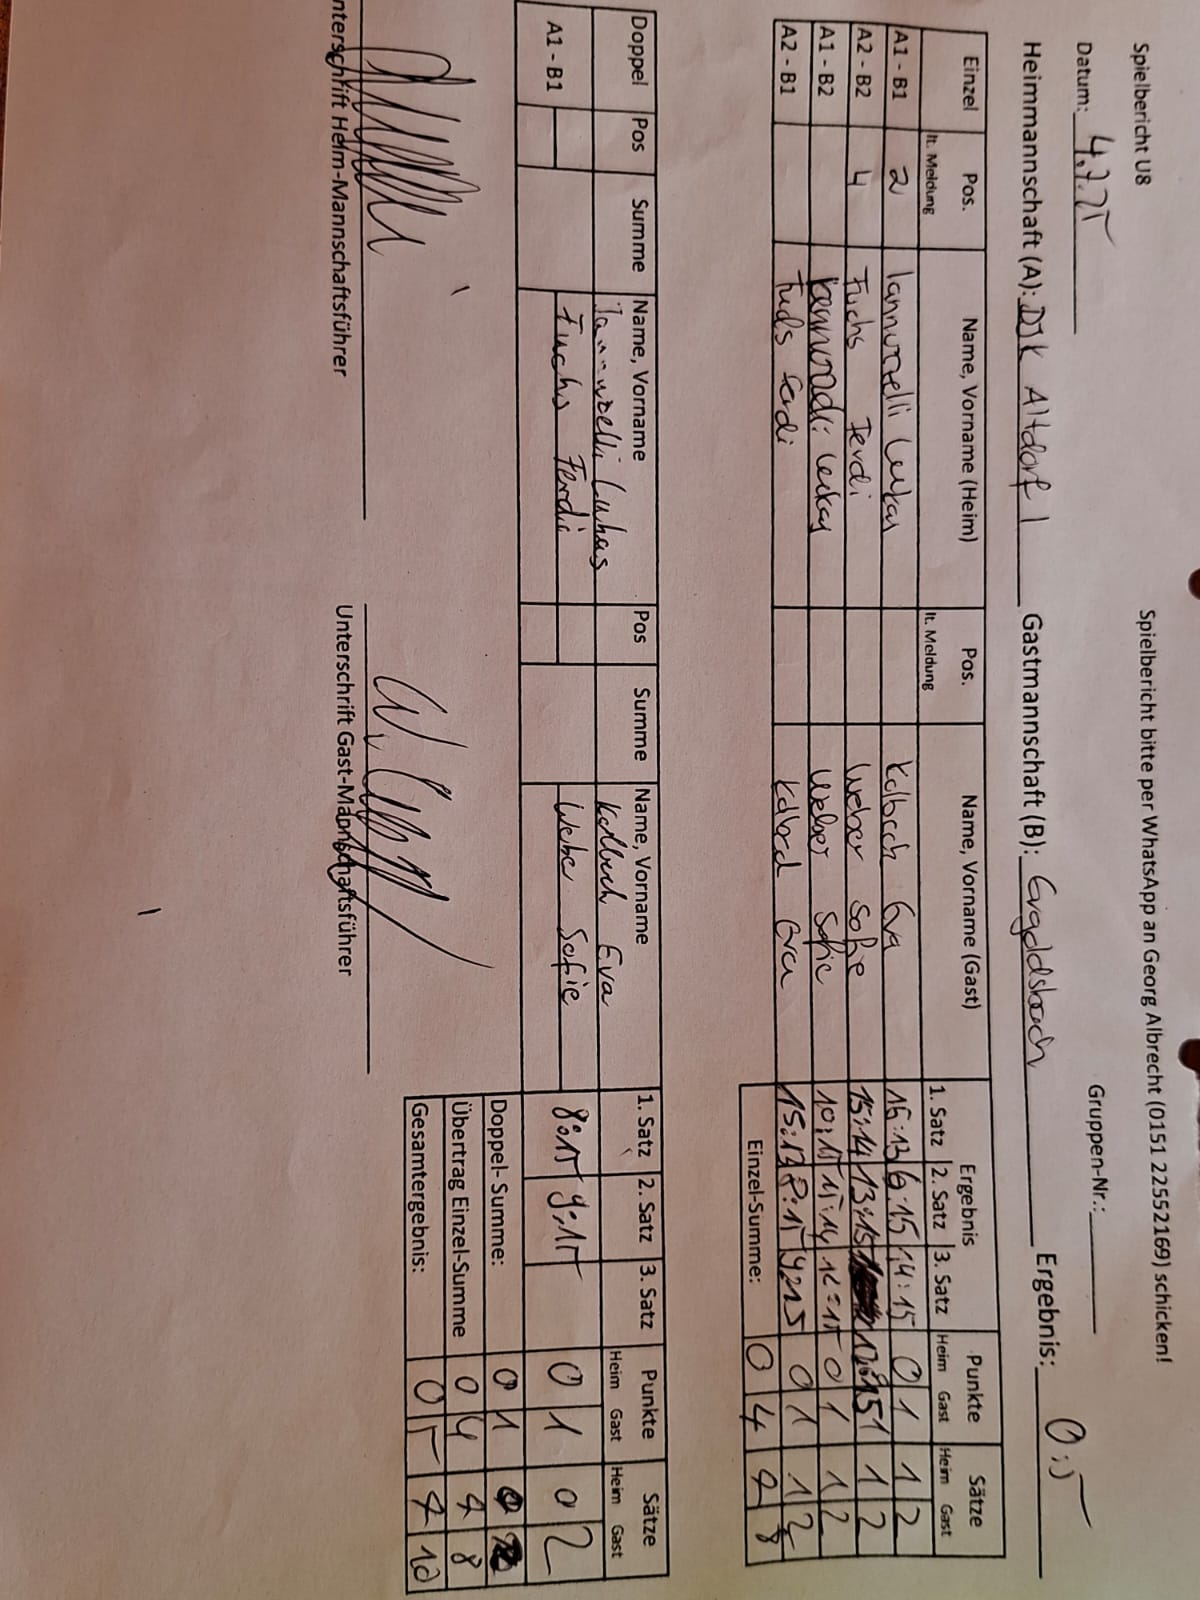 Spielbericht U8 Spielbericht bitte per WhatsApp an Georg Albrecht (0151 22552169) schicken!
Datum: 4.7.25 Gruppen-Nr.:
Heimmannschaft (A): DJK Altdorf I Gastmannschaft (B): Ergoldsbach Ergebnis: 0:5
Einzel Pos. Name, Vorname (Heim) Pos. Name, Vorname (Gast) Ergebnis Punkte Sätze
lt. Meldung lt. Meldung 1. Satz 2. Satz 3. Satz Heim Gast Heim Gast
A1 - B1 2 Iannuzzelli Lukas Kolbeck Eva 6:15 14:15 0 1 1 2
A2 - B2 4 Fuchs Ferdi Weber Sofie 15:14 13:15 1 1 2
A1 - B2 Lukas Weber Sofie 10:15 15:14 12:15 0 1 1 2
A2 - B1 Fuchs Ferdi Eva 15:13 8:15 0 1 1 2
Einzel-Summe: 0 4 4 8
Doppel Pos Summe Name, Vorname Pos Summe Name, Vorname 1. Satz 2. Satz 3. Satz Punkte Sätze
Heim Gast Heim Gast
Lukas Kolbeck Eva
A1 - B1 Fuchs Ferdi Sofie 8:15 9:15 0 1 0 2
Doppel- Summe: 0 1
Übertrag Einzel-Summe 0 4 4 8
Gesamtergebnis: 0 5 4 10
nterschrift Heim-Mannschaftsführer Unterschrift Gast-Mannschaftsführer